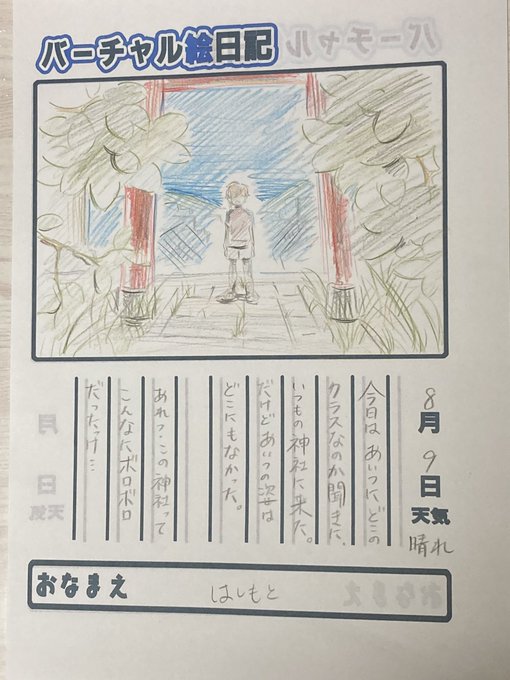 バーチャル絵日記
8月9日
天気
晴れ
今日はあいつにどこの
クラスなのか聞きに、
いつもの神社に来た。
だけどあいつの姿は
どこにもなかった。
あれ?この神社って
こんなにボロボロ
だったっけ…
おなまえ はしもと